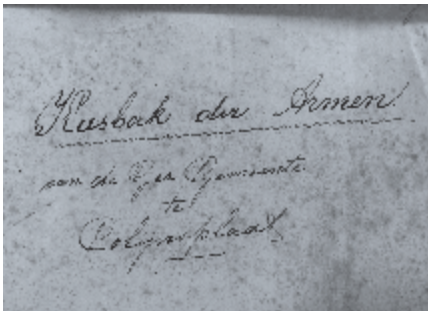 Kasboek der Armen
van de Ger. Gemeente
te
Colijnsplaat